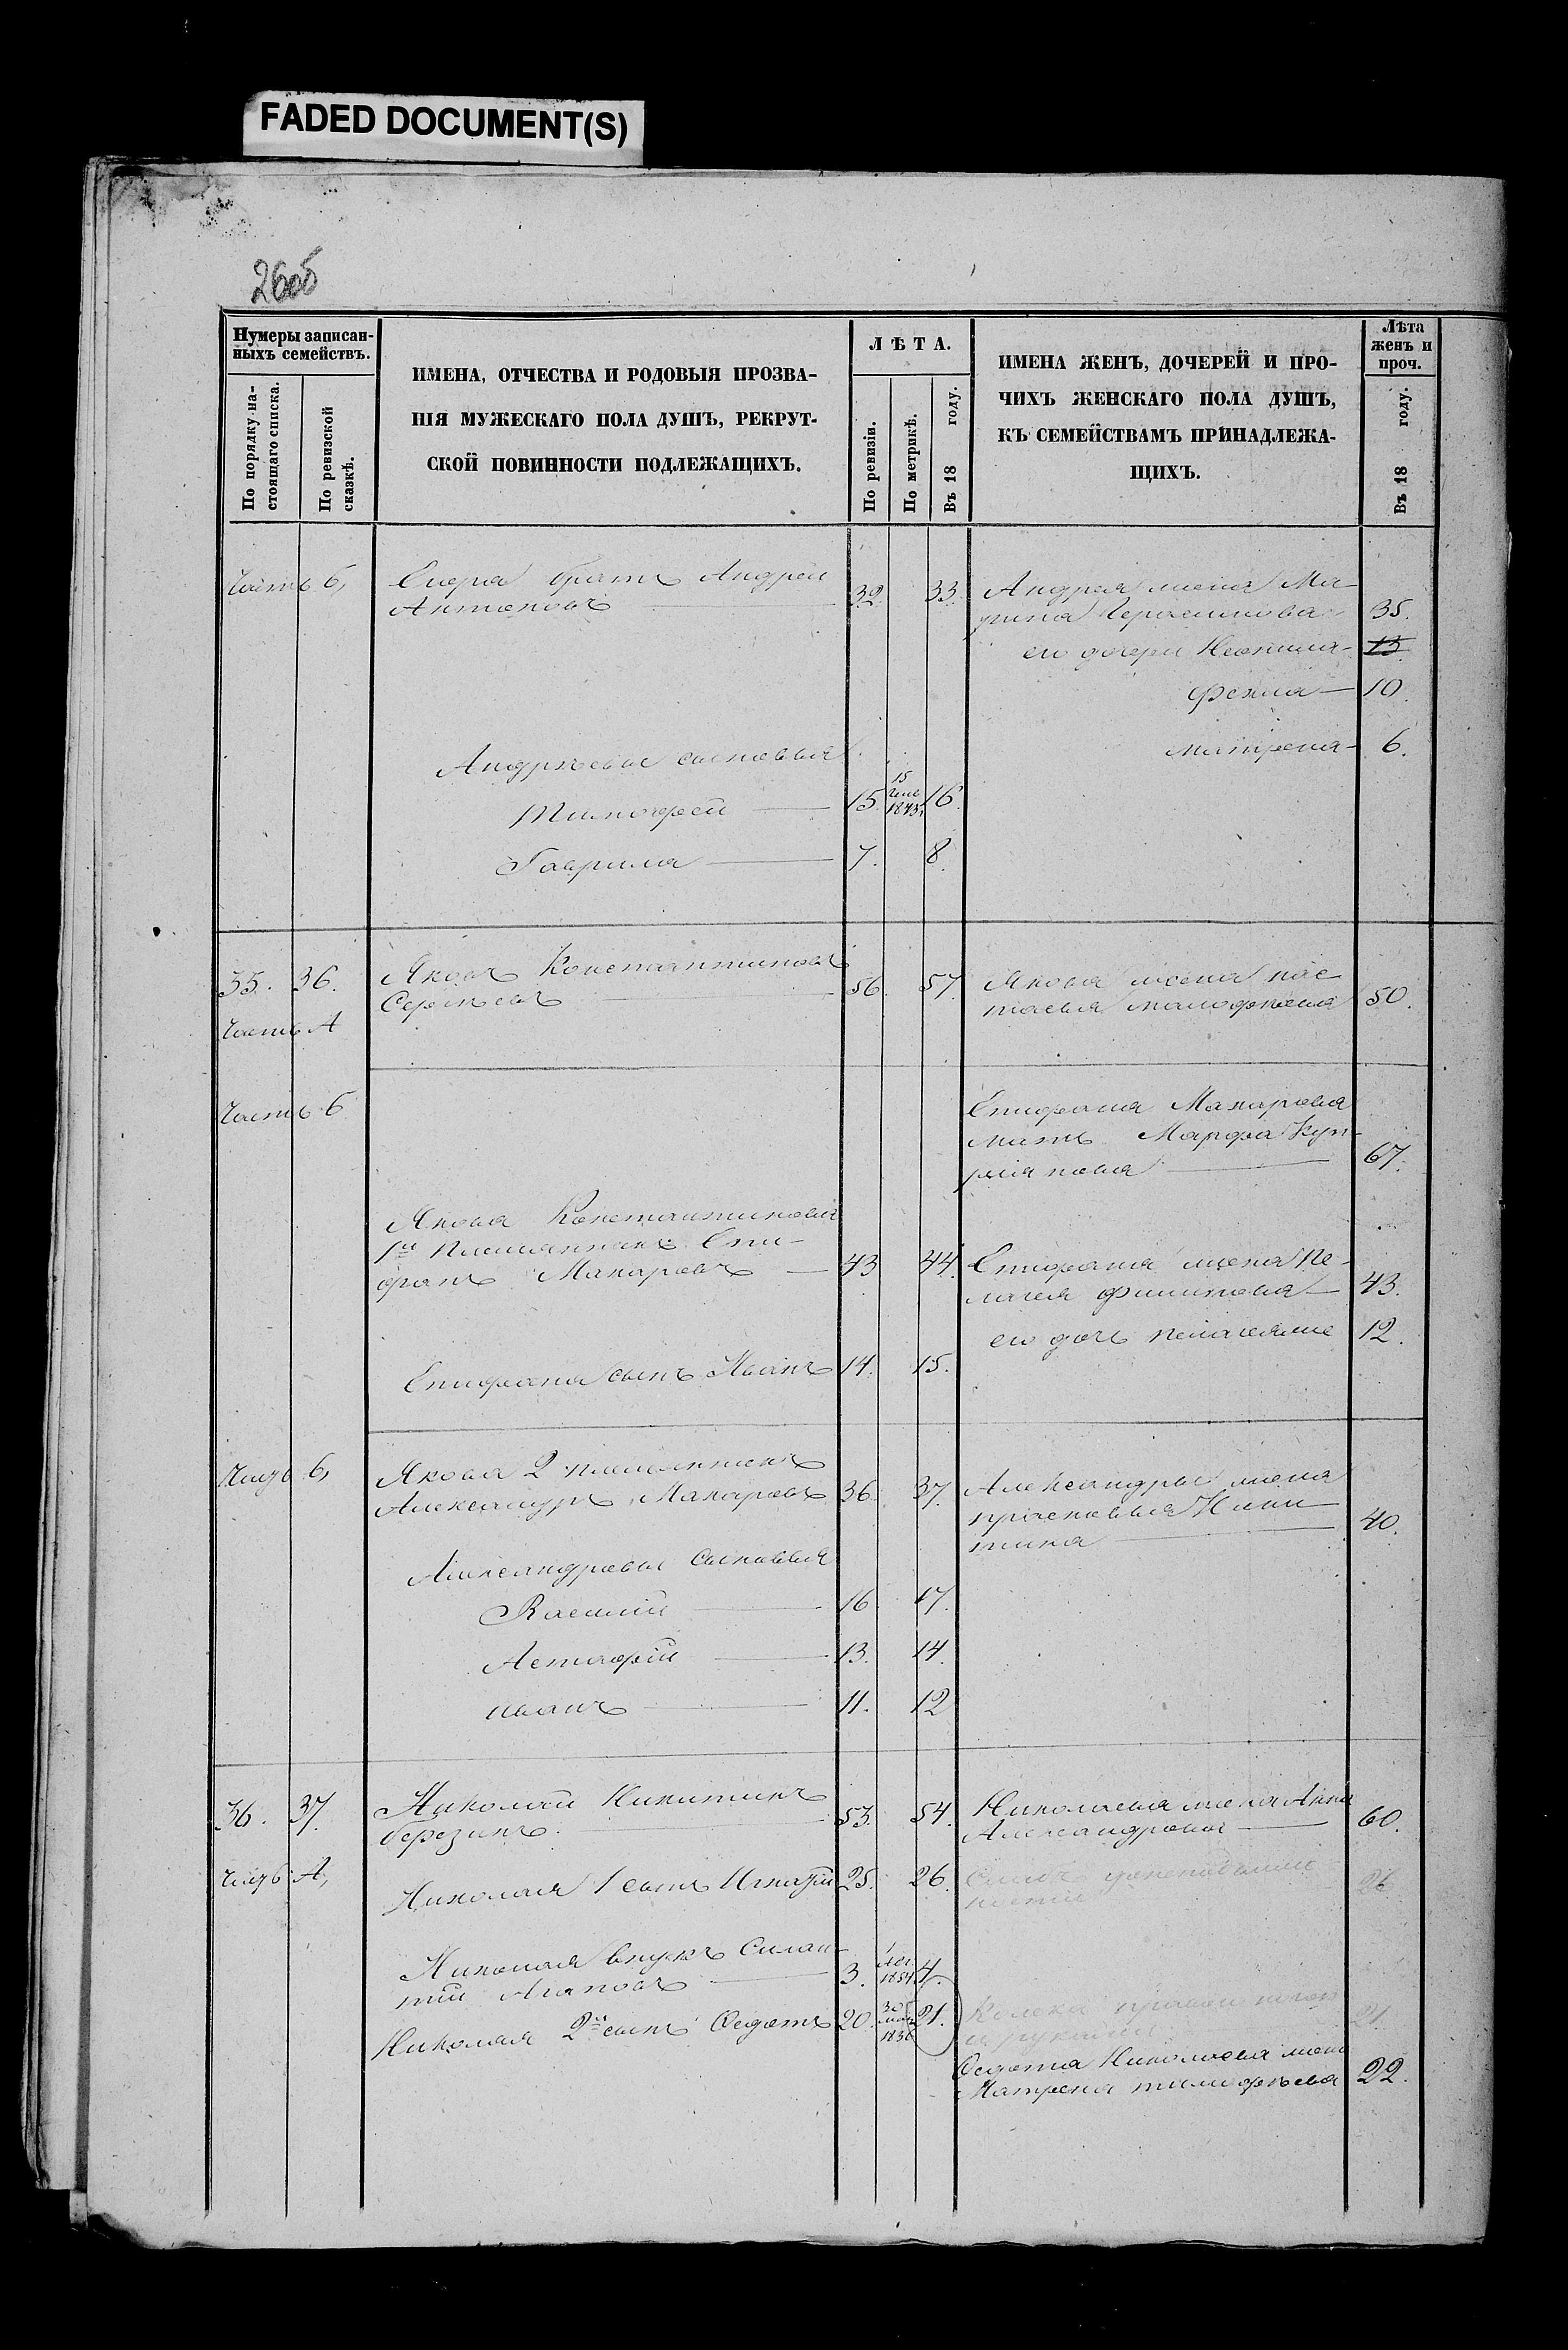 FADED DOCUMENT(S)
26об
Нумеры записан-
ныхъ семействъ.
По порядку на-
стоящаго списка.
По ревизской
сказкѣ.
ИМЕНА, ОТЧЕСТВА И РОДОВЫЯ ПРОЗВА-
НІЯ МУЖЕСКАГО ПОЛА ДУШЪ, РЕКРУТ-
СКОЙ ПОВИННОСТИ ПОДЛЕЖАЩИХЪ.
ЛѢТА.
По ревизіи.
По метрикѣ.
Въ 18 году.
ИМЕНА ЖЕНЪ, ДОЧЕРЕЙ И ПРО-
ЧИХЪ ЖЕНСКАГО ПОЛА ДУШЪ,
КЪ СЕМЕЙСТВАМЪ ПРИНАДЛЕЖА-
ЩИХЪ.
Лѣта
женъ и
проч.
Въ 18 году.
Часть б, братъ Андрей
Антоновъ 32. 33. Андрея жена Ма-
35.
его дочери 13.
Фекла 10.
матрена 6.
Андрѣевы сыновья
Тимофей 15. 15 1843 16.
Гаврила 7. 8.
35. 36. Яковъ Константиновъ
Сергѣевъ 56. 57. Якова жена нас-
тасья тимофѣева 50.
Часть А
Часть б Епифана Макарова
мать Марфа Куп-
реянова 67.
Якова Константинова
1й Племянникъ Епи-
фанъ Макаровъ 43. 44. Епифана жена Пе-
лагея филипова 43.
его дочь пелагея 12.
Епифана сынъ Иванъ 14. 15.
Часть б, Якова 2 племянникъ
Александръ Макаровъ 36. 37. Александры жена
прасковья Ники-
тина 40.
Александровы сыновья
Василій 16. 17.
Астафій 13. 14.
иванъ 11. 12
36. 37. Николай Никитинъ
березинъ 53. 54. Николаева жена Анна
Александрова 60.
Часть А, Николая 1 сынъ Игнатій 25. 26. 26
Николая внукъ Силан-
тій Агаповъ 3. 1 1854 4.
Николая 2й сынъ Федотъ 20. 30 1836 21. 21.
Федота Николаева жена
Матрена тимофѣева 22.